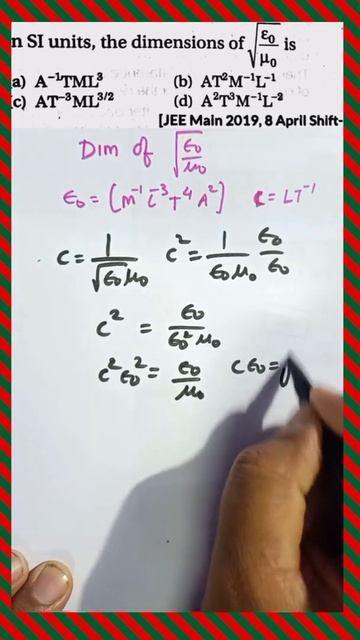 n SI units, the dimensions of √ε₀/μ₀ is
a) A⁻¹TML³ (b) AT²M⁻¹L⁻¹
c) AT⁻³ML³ᐟ² (d) A²T³M⁻¹L⁻²
[JEE Main 2019, 8 April Shift-
Dim of √ε₀/μ₀
ε₀ = [M⁻¹L⁻³T⁺⁴A²] C = LT⁻¹
C = 1/√ε₀μ₀ C² = 1/ε₀μ₀ ε₀/ε₀
C² = ε₀/ε₀²μ₀
C²ε₀² = ε₀/μ₀ Cε₀ =